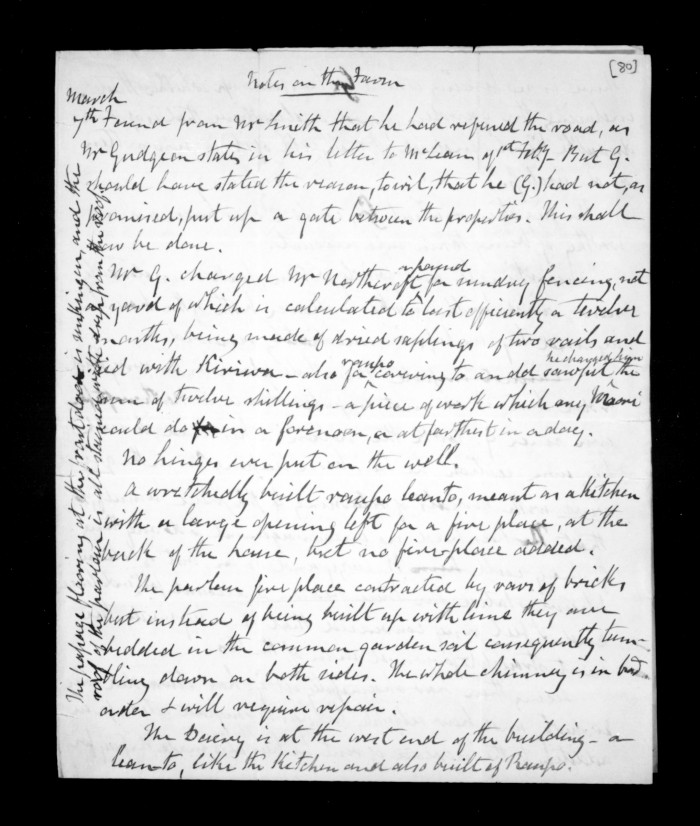 [80]
Notes on the Farm
March
7th Found from Mr Smith that he had refused the road, as
Mr Gudgeon states in his letter to McLean of 1st Feby - But G.
should have stated the reason, to wit, that he (G.) had not, as
promised, put up a gate between the properties. This shall
now be done.
Mr G. charged Mr Northcroft for sundry fencing, not
a yard of which is calculated to last efficiently a twelve
months, being made of dried saplings of two rails and
tied with Kiriwa - also for raupo covering to an old sawpit he charged him the
sum of twelve shillings - a piece of work which any Maori
could do in a forenoon, or at farthest in a day.
No hinges ever put on the well.
A wretchedly built raupo leanto, meant as a Kitchen
with a large opening left for a fire place, at the
back of the house, but no fire place added.
The parlour fire place contracted by rows of bricks
but instead of being built up with lime they are
bedded in the common garden soil consequently tum-
bling down on both sides. The whole chimney is in bad
order & will require repair.
The Dairy is at the west end of the building - a
lean-to, like the Kitchen and also built of Raupo.
The passage flooring at the front door is sinking in, and the
roof of the parlour is all stained with drip from the roof.